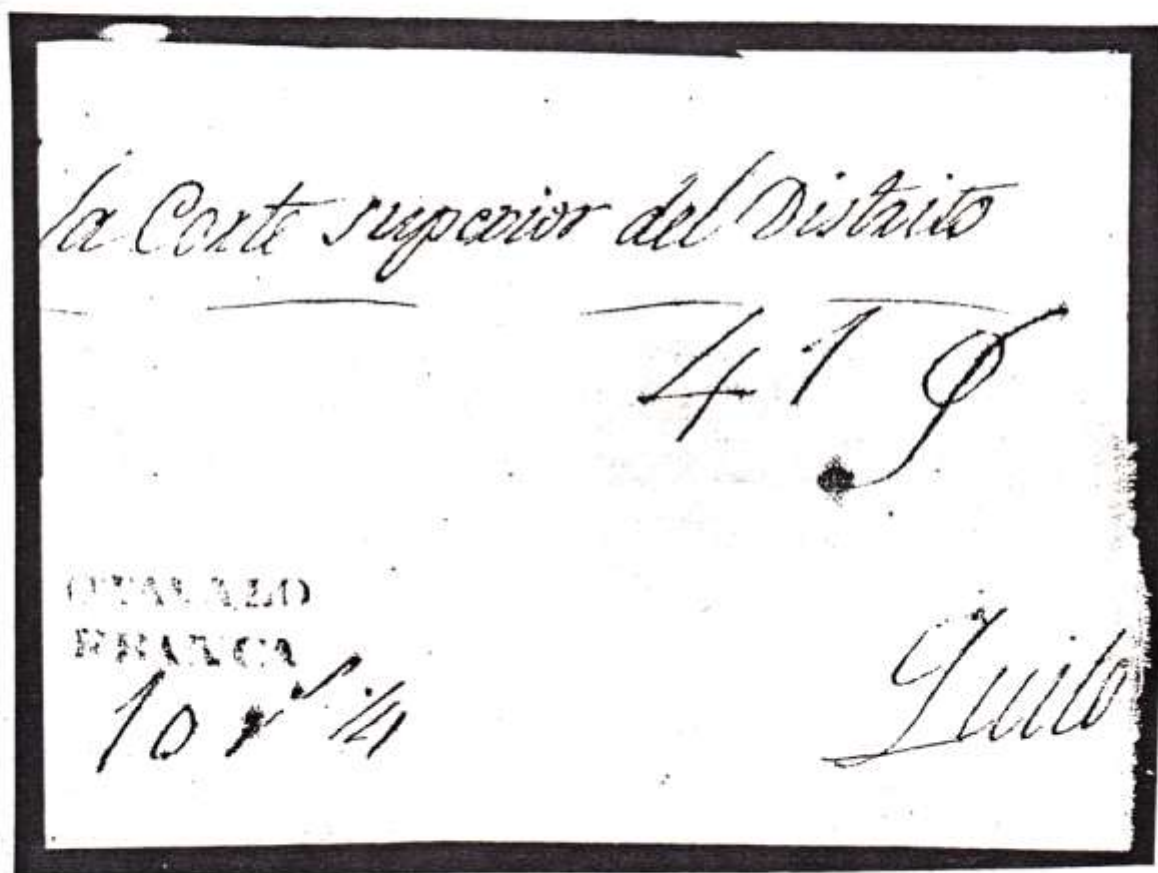 la Corte superior del Distrito
41 P
OTAVALO
FRANCA
10 rs 1/4
Quito